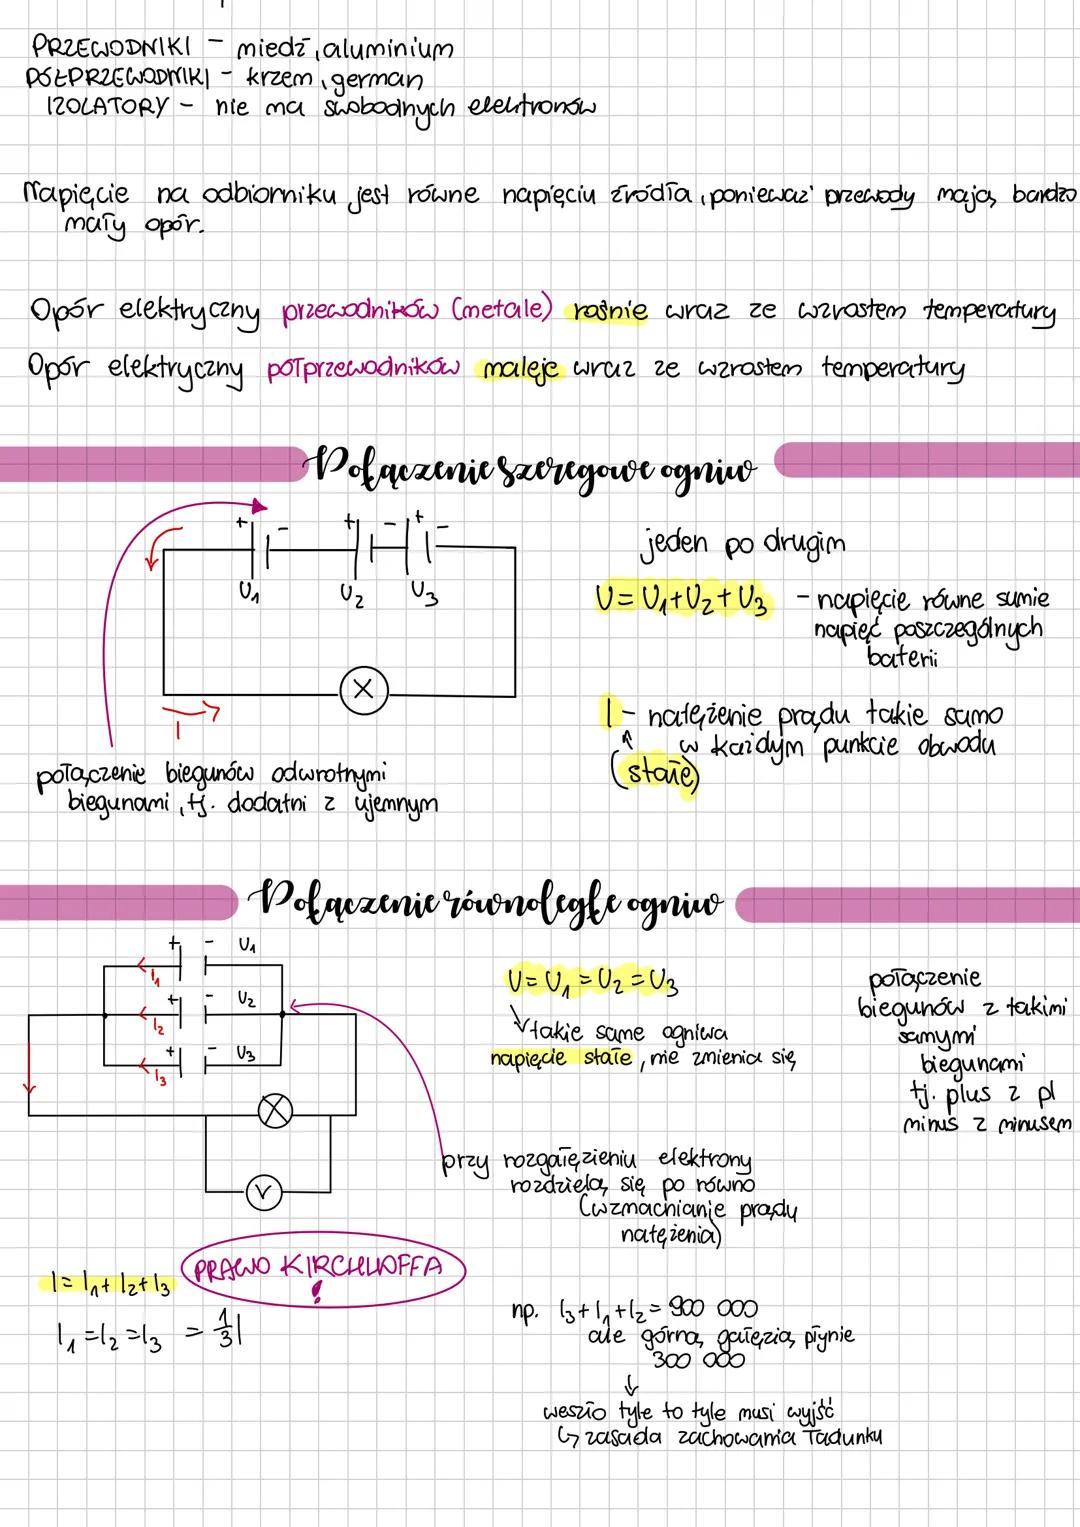 PRZEWODNIKI - miedź, aluminium
PÓŁPRZEWODNIKI - krzem, german
IZOLATORY - nie ma swobodnych elektronów
Napięcie na odbiorniku jest równe napięciu źródła, ponieważ przewody mają bardzo
mały opór.
Opór elektryczny przewodników (metale) rośnie wraz ze wzrostem temperatury
Opór elektryczny półprzewodników maleje wraz ze wzrostem temperatury
Połączenie szeregowe ogniw
+ - + - + -
U₁ U₂ U₃
X
I
połączenie biegunów odwrotnymi
biegunami, tj. dodatni z ujemnym
jeden po drugim
U = U₁+U₂+U₃ - napięcie równe sumie
napięć poszczególnych
baterii
I - natężenie prądu takie samo
w każdym punkcie obwodu
(stałe)
Połączenie równoległe ogniw
+ - U₁
I₁
+ - U₂
I₂
+ - U₃
I₃
X
V
U = U₁ = U₂ = U₃
takie same ogniwa
napięcie stałe, nie zmienia się
połączenie
biegunów z takimi
samymi
biegunami
tj. plus z pl
minus z minusem
przy rozgałęzieniu elektrony
rozdzielą się po równo
(wzmacnianie prądu
natężenia)
PRAWO KIRCHHOFFA
!
I = I₁ + I₂ + I₃
I₁ = I₂ = I₃ = 1/3 I
np. I₃ + I₁ + I₂ = 900 000
ale górną gałęzią płynie
300 000
↓
weszło tyle to tyle musi wyjść
↳ zasada zachowania ładunku